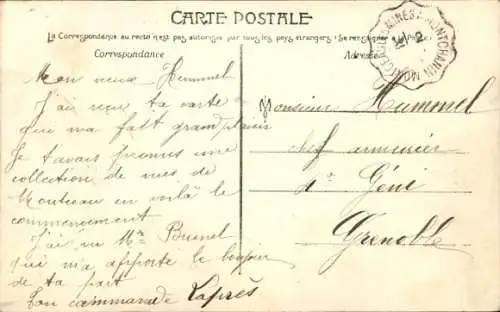 CARTE POSTALE
La Correspondance au recto n'est pas autorisée par tous les pays étrangers (Se renseigner à la Poste)
Correspondance
Adresse
MONTCHANIN
Mon vieux Hummel
J'ai reçu ta carte
qui m'a fait grand plaisir
Je t'avais promis une
collection de vues de
Montceau en voilà le
commencement
J'ai vu Mr Brunel
qui m'a apporté le bonjour
de ta part
Ton camarade Laprès
Monsieur Hummel
chef armurier
du Génie
Grenoble